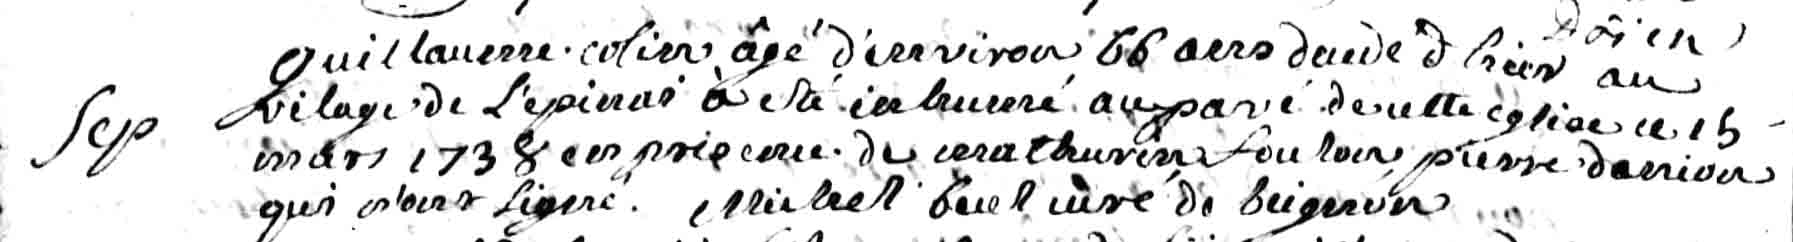 Guillaume colin âgé d'environ 66 ans decedé d'hier au
Sep vilage de L'epinai à esté inhumé au pavé de cette eglise ce 15
mars 1738 en presence de mathurin foulon pierre danion
qui n'ont signé. Michel buel curé de beignon